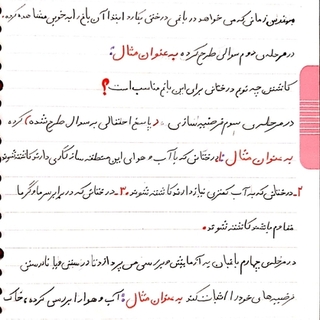 مهندس زمانی که می خواهد در باغی درختی بکارد ابتدا آن باغ را به خوبی مشاهده کرده.
در مرحله ی دوم سوال طرح کرده به عنوان مثال:
کاشتن چه نوع درختانی برای این باغ مناسب است؟
در مرحله ی سوم فرضیه سازی (پاسخ احتمالی به سوال طرح شده) کرده
به عنوان مثال: ۱- درختانی که با آب و هوای این منطقه سازگاری دارند کاشته شوند
۲- درختانی که به آب کمتری نیاز دارند کاشته شوند. ۳- درختانی که در برابر سرما و گرما
مقاوم باشند کاشته شوند.
در مرحله ی چهارم باغبان به آزمایش و بررسی می پردازد تا درستی و یا نادرستی
فرضیه های خود را اثبات کند به عنوان مثال: آب و هوا را بررسی کرده، خاک